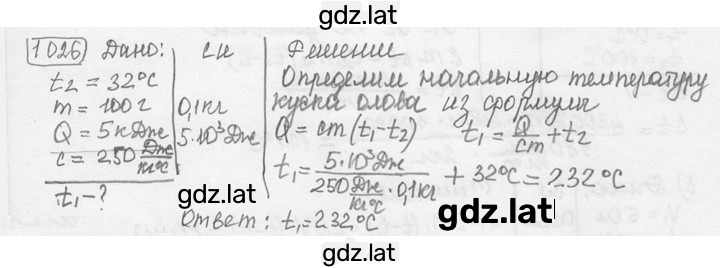 gdz.lat
1026 Дано: СИ Решение
t₂ = 32°C
m = 100 г 0,1 кг
Q = 5 кДж 5·10³ Дж
c = 250 Дж/кг°C
t₁ - ?
Определим начальную температуру
куска олова из формулы
Q = cm(t₁-t₂) t₁ = Q/cm + t₂
t₁ = 5·10³Дж / 250 Дж/кг°C · 0,1кг + 32°C = 232°C
Ответ: t₁ = 232°C
gdz.lat
gdz.lat